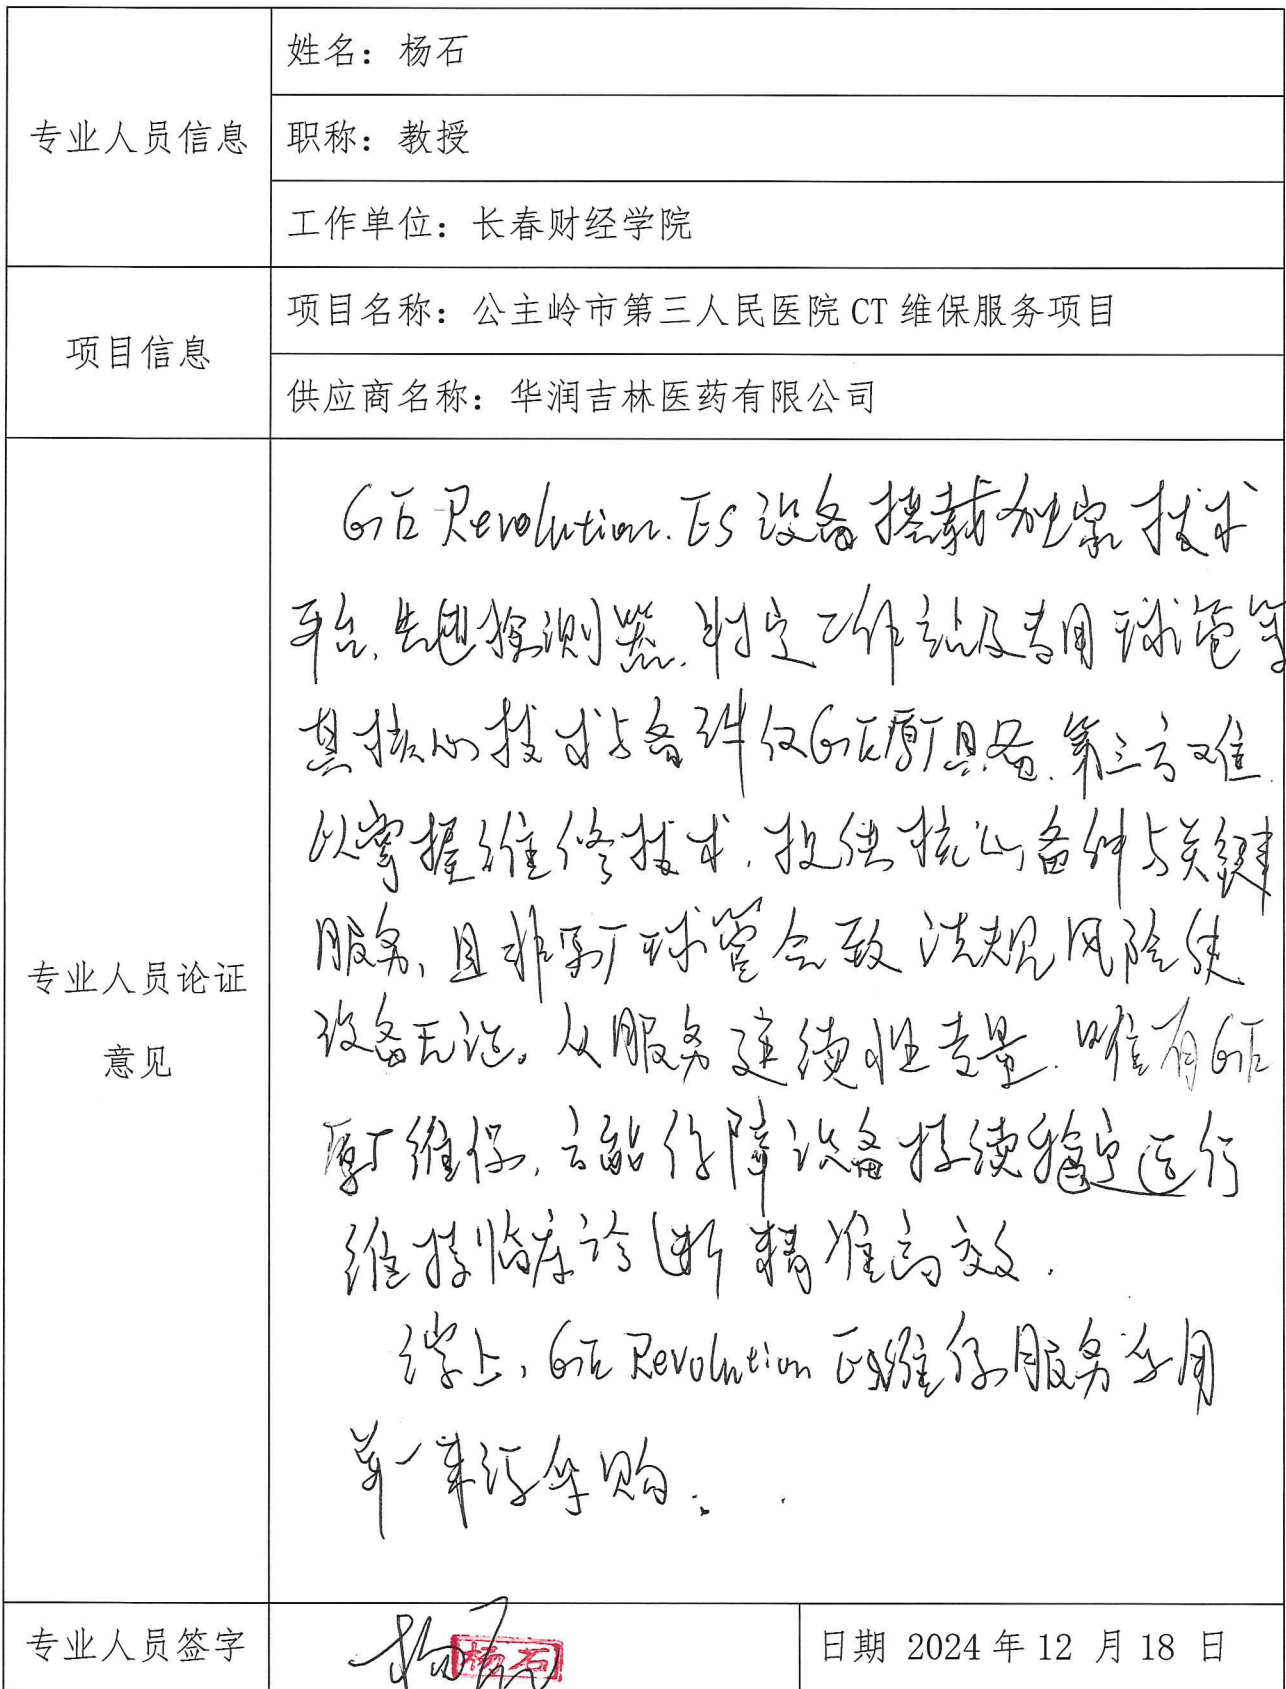 专业人员信息
姓名：杨石
职称：教授
工作单位：长春财经学院
项目信息
项目名称：公主岭市第三人民医院 CT 维保服务项目
供应商名称：华润吉林医药有限公司
专业人员论证
意见
GE Revolution. ES 设备搭载独家技术
平台、先进探测器、特定工作站及专用球管等
其核心技术与备件仅GE原厂具备、第三方难
以掌握维修技术、提供核心备件与关键
服务、且非原厂球管会致法规风险使
设备无证。从服务延续性考量、唯有GE
原厂维保、方能保障设备持续稳定运行
维持临床诊断精准高效.
综上，GE Revolution ES维保服务采用
单一来源采购。
专业人员签字
杨石
杨石
日期 2024 年 12 月 18 日